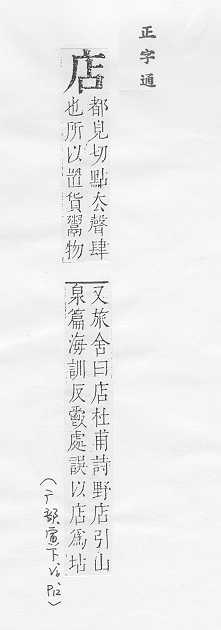 正字通
店
都見切點厺聲肆
也所以置貨鬻物
又旅舍曰店杜甫詩野店引山
泉篇海訓反爵處誤以店爲坫
（广部寅下